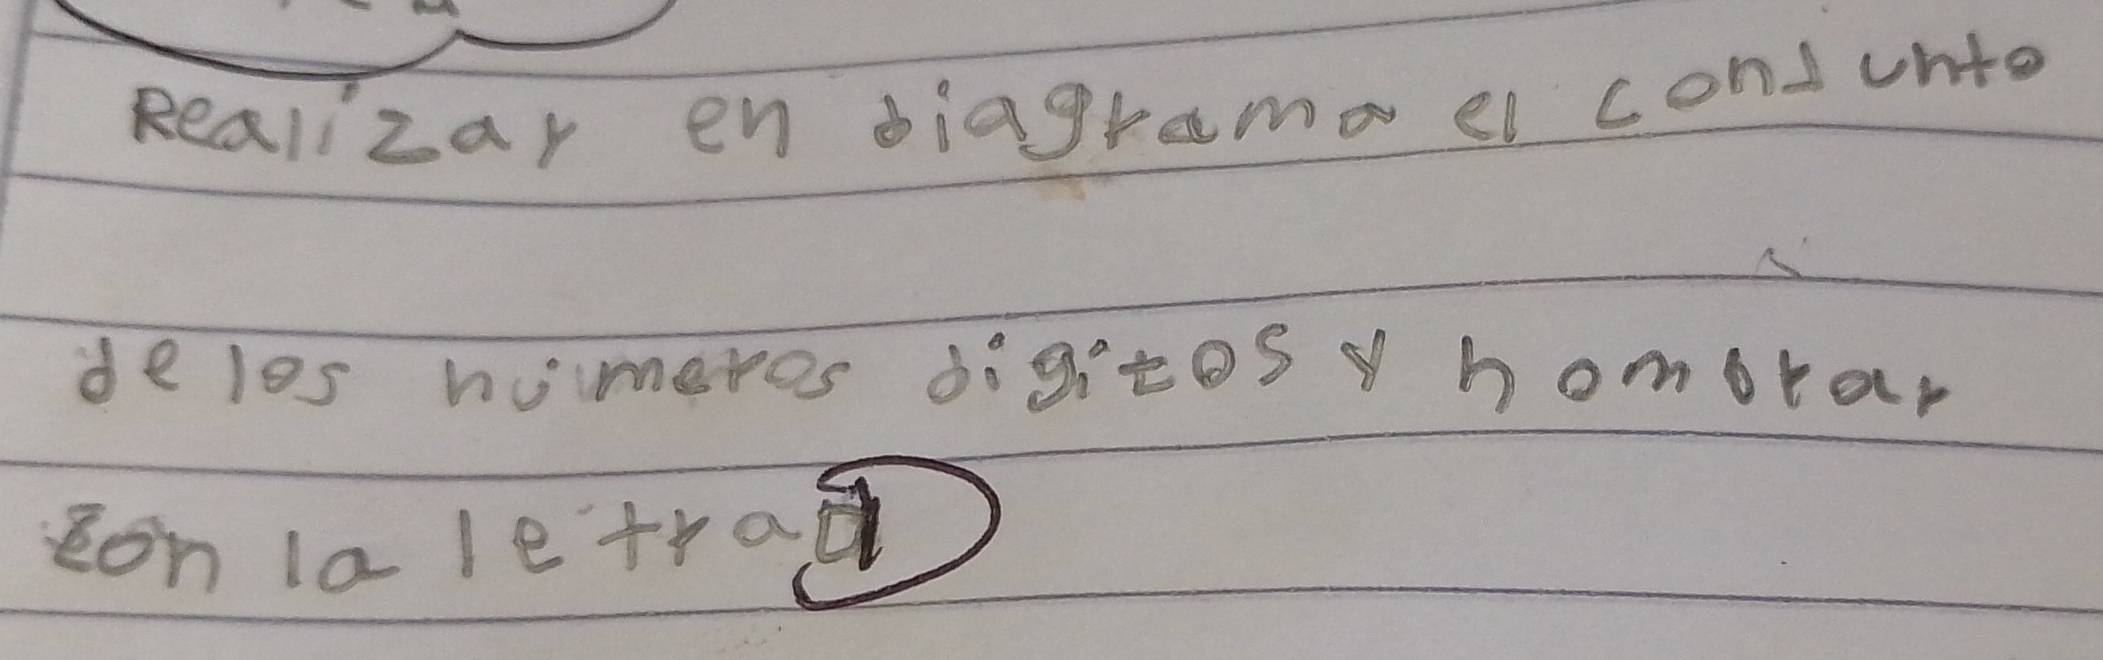 Realizar en diagrama el conjunto
de los números digitos y nombrar
con la letra D